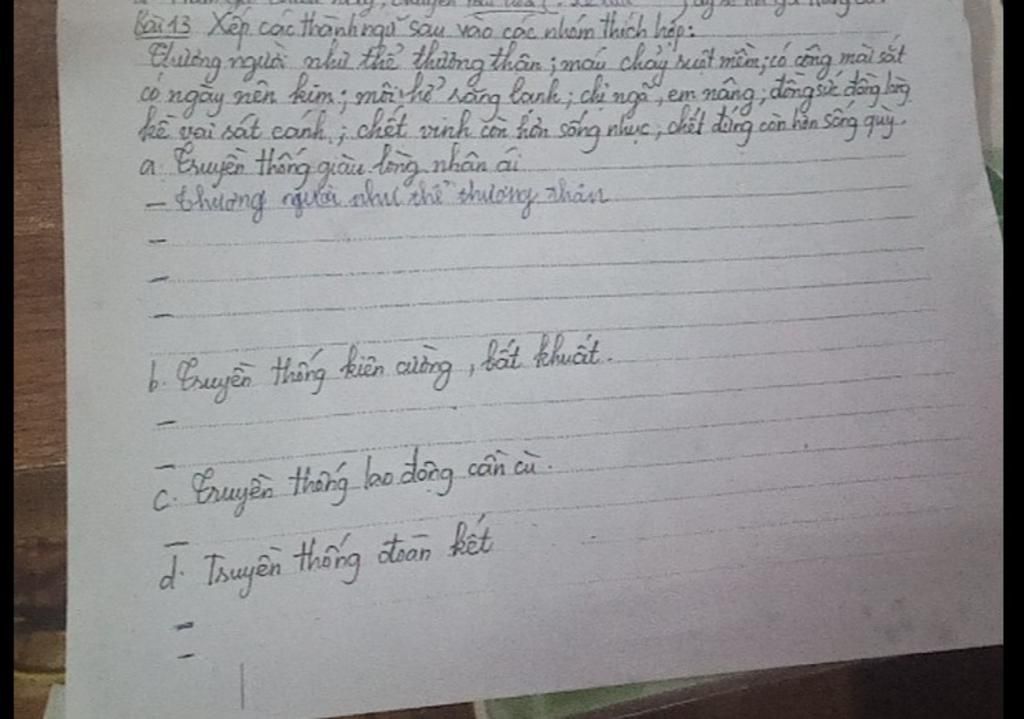 Bài 13 Xếp các thành ngữ sau vào các nhóm thích hợp:
Thương người như thể thương thân; máu chảy ruột mềm; có công mài sắt
có ngày nên kim; môi hở răng lạnh; chị ngã, em nâng; đồng sức đồng lòng
kề vai sát cánh; chết vinh còn hơn sống nhục; chết đứng còn hơn sống quỳ.
a. Truyền thống giàu lòng nhân ái
- thương người như thể thương thân
-
-
-
b. Truyền thống kiên cường, bất khuất.
-
-
c. Truyền thống lao động cần cù.
-
d. Truyền thống đoàn kết
-
-